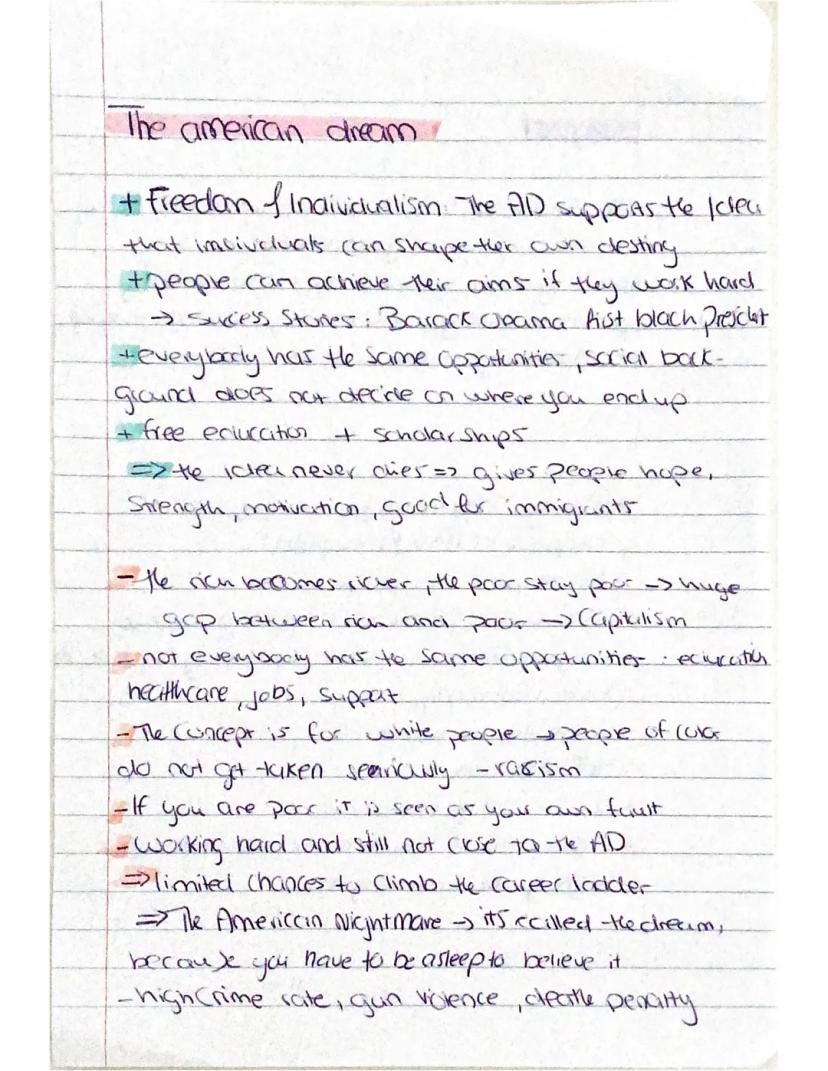 The american dream
+ Freedom & Individualism: The AD supports the Idea
that individuals can shape their own destiny
+ people can achieve their aims if they work hard
→ success stories: Barack Obama first black President
+ everybody has the same opportunities, social back-
ground does not decide on where you end up
+ free education + scholarships
=> the idea never dies => gives people hope,
Strength, motivation, good for immigrants
- the rich becomes richer, the poor stay poor -> huge
gap between rich and poor -> Capitalism
- not everybody has the same opportunities: education
healthcare, jobs, support
- The Concept is for white people → people of color
do not get taken seariously - racism
- If you are poor it is seen as your own fault
- Working hard and still not close to the AD
=> limited chances to climb the career ladder
=> The American Nightmare → it's called the dream,
because you have to be asleep to believe it
- high Crime rate, gun violence, death penalty